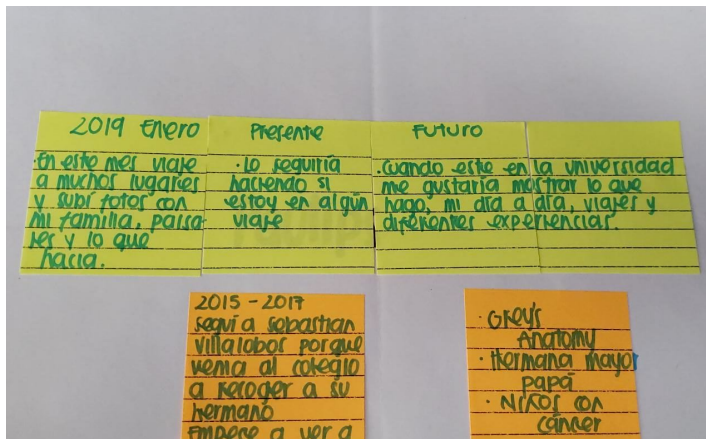 2019 Enero
·En este mes viaje
a muchos lugares
y subí fotos con
mi familia, paisa
jes y lo que
hacia.
Presente
·Lo seguiría
haciendo si
estoy en algún
viaje
Futuro
·Cuando este en la universidad
me gustaría mostrar lo que
hago, mi día a día, viajes y
diferentes experiencias.
2015 - 2017
seguí a sebastian
villalobos porque
venia al colegio
a recoger a su
hermano
Empece a ver a
· Grey's
Anatomy
· Hermana mayor
papá
· Niños con
cáncer